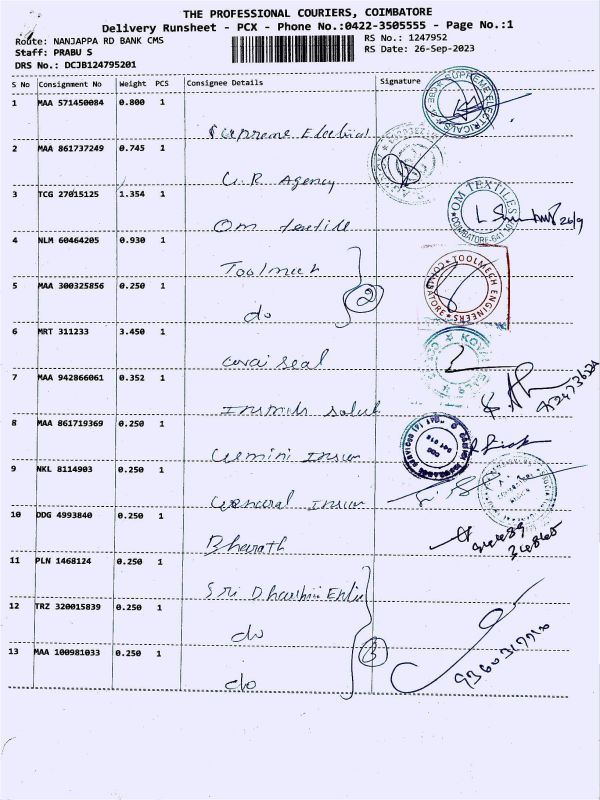 THE PROFESSIONAL COURIERS, COIMBATORE
Delivery Runsheet - PCX - Phone No.:0422-3505555 - Page No.:1
Route: NANJAPPA RD BANK CMS
RS No.: 1247952
Staff: PRABU S
RS Date: 26-Sep-2023
DRS No.: DCJB124795201
S No Consignment No Weight PCS Consignee Details Signature
1 MAA 571450084 0.800 1
Supreme Electrical
SUPREME ELECTRICALS
2 MAA 861737249 0.745 1
U.R Agency
3 TCG 27015125 1.354 1
Om textile
OM TEXTILES
COIMBATORE-641
26/9
4 NLM 60464205 0.930 1
Toolmech
5 MAA 300325856 0.250 1
do
2
TOOLMECH ENGINEERS
6 MRT 311233 3.450 1
covai seal
7 MAA 942866061 0.352 1
8 MAA 861719369 0.250 1
Gemini Insur
9 NKL 8114903 0.250 1
General Insur
10 DDG 4993840 0.250 1
Bharath
11 PLN 1468124 0.250 1
Sri
12 TRZ 320015839 0.250 1
do
13 MAA 100981033 0.250 1
do
3